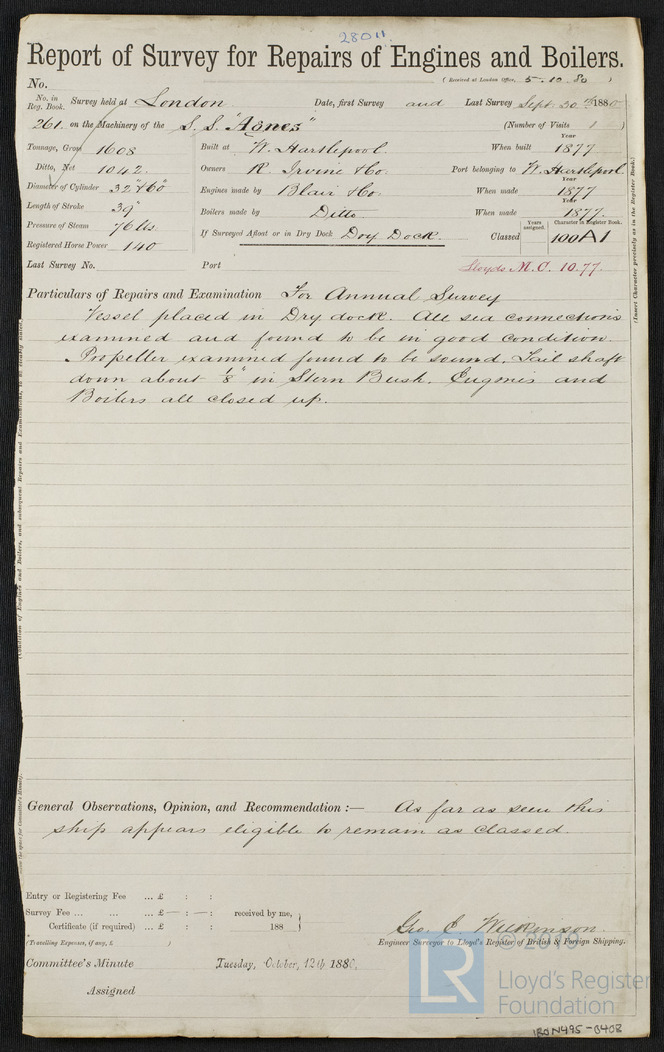 28011.
Report of Survey for Repairs of Engines and Boilers.
No.
(Received at London Office, 5.10.80)
No. in Reg. Book. Survey held at London Date, first Survey and Last Survey Sept. 30th 1880
261. on the Machinery of the S.S. "Agnes" (Number of Visits 1)
Tonnage, Gross 1608 Built at W. Hartlepool. When built Year 1877
Ditto, Net 1042 Owners R. Irvine & Co. Port belonging to W. Hartlepool.
Diameter of Cylinder 32" & 60" Engines made by Blair & Co. When made Year 1877
Length of Stroke 39" Boilers made by Ditto When made Year 1877.
Pressure of Steam 76 lbs If Surveyed Afloat or in Dry Dock Dry Dock. Classed Years assigned. Character in Register Book. 100 A 1
Registered Horse Power 140
Last Survey No. Port Lloyds M.C. 10.77.
Particulars of Repairs and Examination For Annual Survey
Vessel placed in Dry dock. All sea connections
examined and found to be in good condition.
Propeller examined found to be sound. Tail shaft
down about 1/8" in Stern Bush. Engines and
Boilers all closed up.
(Insert Character precisely as in the Register Book.)
General Observations, Opinion, and Recommendation :— As far as seen this
ship appears eligible to remain as classed.
Entry or Registering Fee ... £ : :
Survey Fee ... ... ... £ — : — : received by me,
Certificate (if required) ... £ : : 188
(Travelling Expenses, if any, £ )
Geo. E. Wilkinson.
Engineer Surveyor to Lloyd's Register of British & Foreign Shipping.
Committee's Minute Tuesday, October, 12th 1880.
Assigned
© 2019
LR
Lloyd's Register
Foundation
IRON495-0408